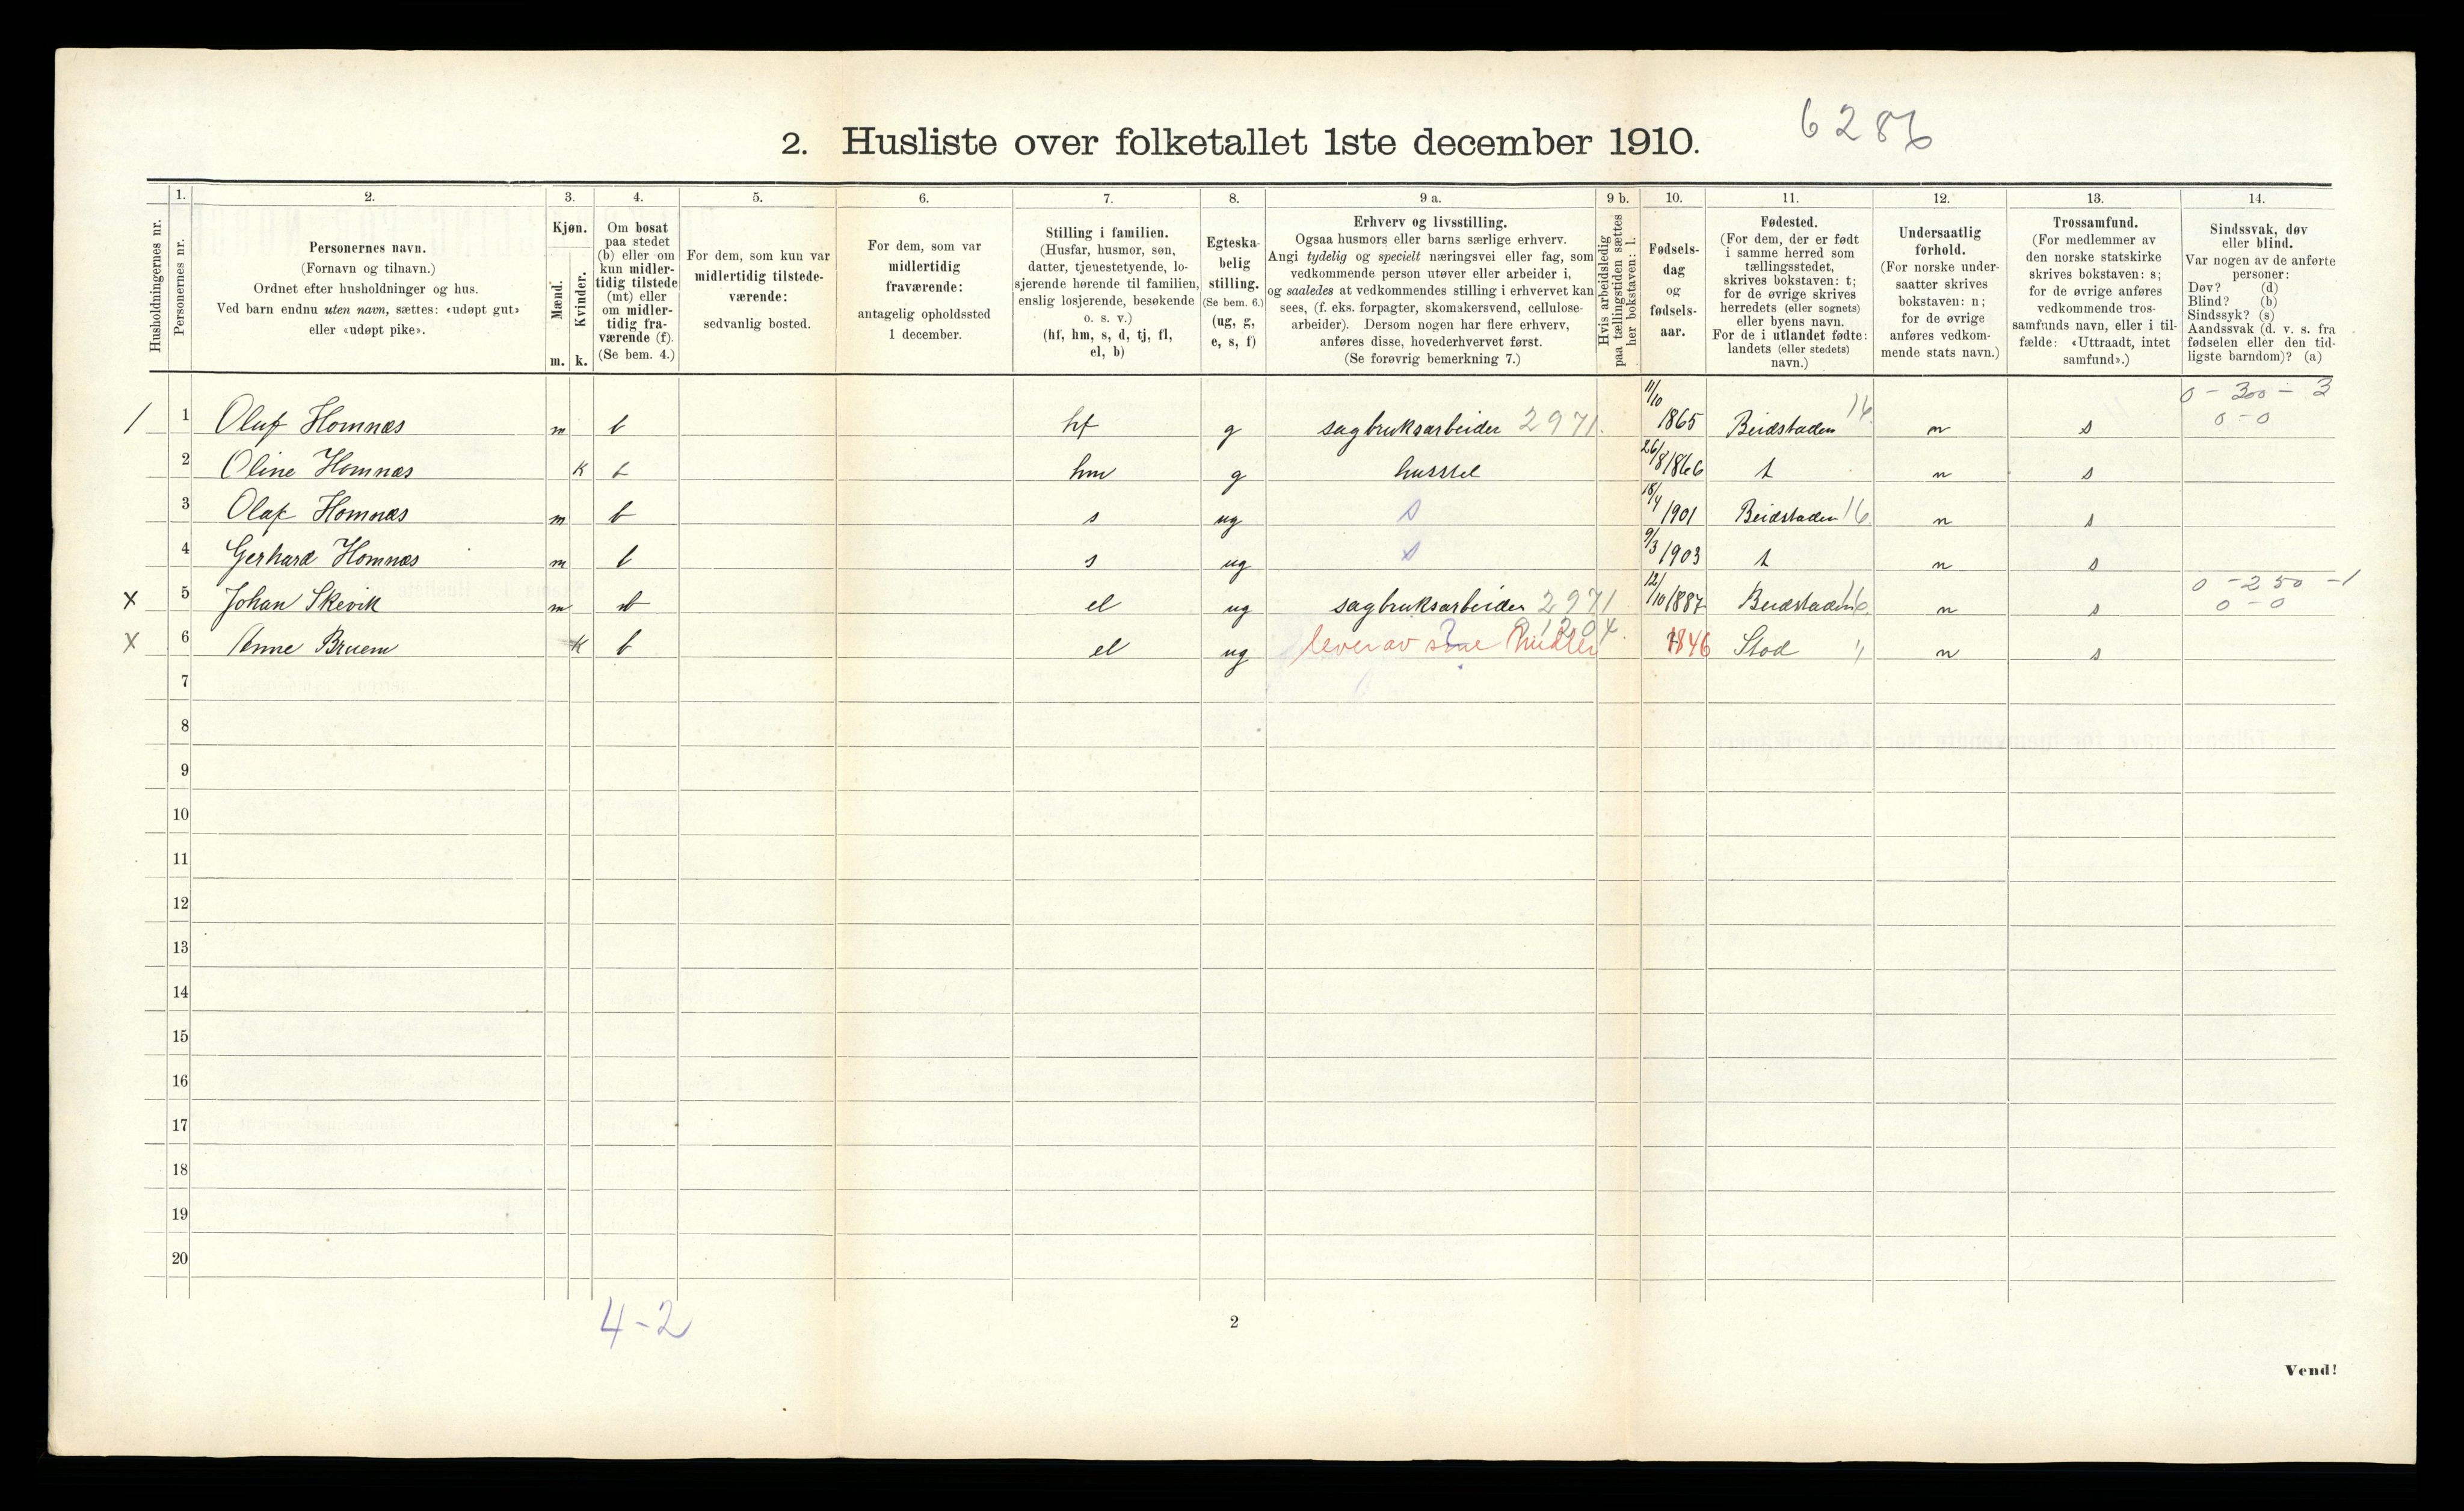 6286
2. Husliste over folketallet 1ste december 1910.
Husholdningernes nr.
1.
Personernes nr.
2.
Personernes navn.
(Fornavn og tilnavn.)
Ordnet efter husholdninger og hus.
Ved barn endnu uten navn, sættes: «udøpt gut»
eller «udøpt pike».
3.
Kjøn.
Mænd.
Kvinder.
m. k.
4.
Om bosat
paa stedet
(b) eller om
kun midler-
tidig tilstede
(mt) eller
om midler-
tidig fra-
værende (f).
(Se bem. 4.)
5.
For dem, som kun var
midlertidig tilstede-
værende:
sedvanlig bosted.
6.
For dem, som var
midlertidig
fraværende:
antagelig opholdssted
1 december.
7.
Stilling i familien.
(Husfar, husmor, søn,
datter, tjenestetyende, lo-
sjerende hørende til familien,
enslig losjerende, besøkende
o. s. v.)
(hf, hm, s, d, tj, fl,
el, b)
8.
Egteska-
belig
stilling.
(Se bem. 6.)
(ug, g,
e, s, f)
9 a.
Erhverv og livsstilling.
Ogsaa husmors eller barns særlige erhverv.
Angi tydelig og specielt næringsvei eller fag, som
vedkommende person utøver eller arbeider i,
og saaledes at vedkommendes stilling i erhvervet kan
sees, (f. eks. forpagter, skomakersvend, cellulose-
arbeider). Dersom nogen har flere erhverv,
anføres disse, hovederhvervet først.
(Se forøvrig bemerkning 7.)
9 b.
Hvis arbeidsledig
paa tællingstiden sættes
her bokstaven: l.
10.
Fødsels-
dag
og
fødsels-
aar.
11.
Fødested.
(For dem, der er født
i samme herred som
tællingsstedet,
skrives bokstaven: t;
for de øvrige skrives
herredets (eller sognets)
eller byens navn.
For de i utlandet fødte:
landets (eller stedets)
navn.)
12.
Undersaatlig
forhold.
(For norske under-
saatter skrives
bokstaven: n;
for de øvrige
anføres vedkom-
mende stats navn.)
13.
Trossamfund.
(For medlemmer av
den norske statskirke
skrives bokstaven: s;
for de øvrige anføres
vedkommende tros-
samfunds navn, eller i til-
fælde: «Uttraadt, intet
samfund».)
14.
Sindssvak, døv
eller blind.
Var nogen av de anførte
personer:
Døv? (d)
Blind? (b)
Sindssyk? (s)
Aandssvak (d. v. s. fra
fødselen eller den tid-
ligste barndom)? (a)
/ 1 Oluf Homnæs m b hf g sagbruksarbeider 2971. 11/10 1865 Beidstaden 16 n s 0 - 300 - 3
0 - 0
2 Oline Homnæs k b hm g husstel 26/8 1866 t n s
3 Olaf Homnæs m b s ug s 18/4 1901 Beidstaden 16 n s
4 Gerhard Homnæs m b s ug s 9/3 1903 t n s
x 5 Johan Skevik m b el ug sagbruksarbeider 2971 12/10 1887 Beidstaden 16 n s 0 - 250 - 1
0 - 0
x 6 Anne Bruem k b el ug lever av sine midler 1846 Stod n s
7
8
9
10
11
12
13
14
15
16
17
18
19
20
4-2
2
Vend!